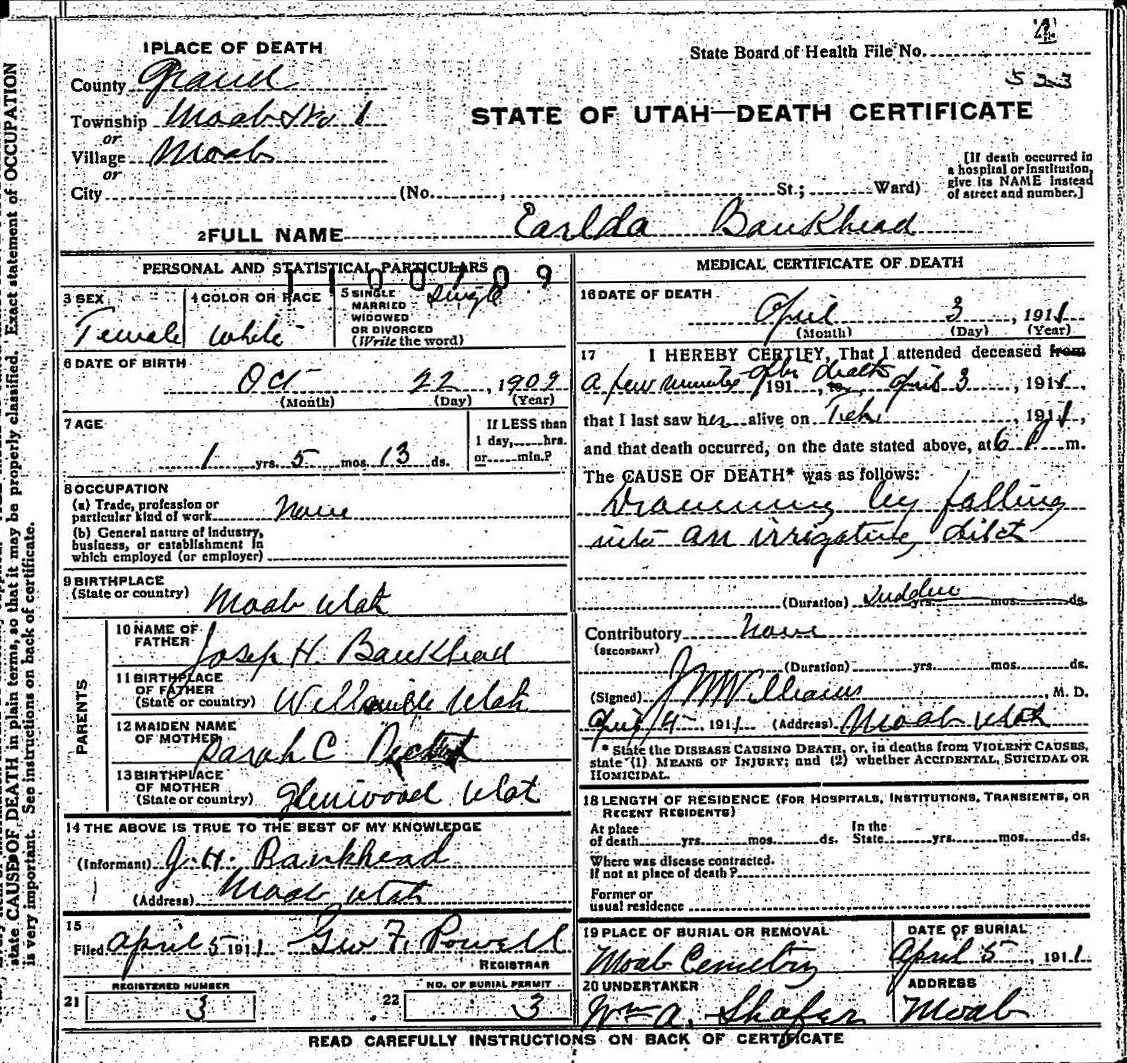 4
1 PLACE OF DEATH
State Board of Health File No.
County Grand
533
Township Moab No. 1
STATE OF UTAH—DEATH CERTIFICATE
or
Village Moab
or
City (No. , St.; Ward)
[If death occurred in
a hospital or institution,
give its NAME instead
of street and number.]
2 FULL NAME Earlda Bankhead
PERSONAL AND STATISTICAL PARTICULARS
1100709
3 SEX
Female
4 COLOR OR RACE
White
5 SINGLE
MARRIED
WIDOWED
OR DIVORCED
(Write the word)
Single
6 DATE OF BIRTH
Oct 22, 1909
(Month) (Day) (Year)
7 AGE
1 yrs. 5 mos. 13 ds.
If LESS than
1 day, hrs.
or min.?
8 OCCUPATION
(a) Trade, profession or
particular kind of work None
(b) General nature of industry,
business, or establishment in
which employed (or employer)
9 BIRTHPLACE
(State or country) Moab Utah
PARENTS
10 NAME OF
FATHER Joseph H. Bankhead
11 BIRTHPLACE
OF FATHER
(State or country) Wellsville Utah
12 MAIDEN NAME
OF MOTHER Sarah C
13 BIRTHPLACE
OF MOTHER
(State or country) Glenwood Utah
14 THE ABOVE IS TRUE TO THE BEST OF MY KNOWLEDGE
(Informant) J. H. Bankhead
(Address) Moab Utah
15
Filed April 5 1911 Geo F. Powell
REGISTRAR
21 REGISTERED NUMBER
3
22 NO. OF BURIAL PERMIT
3
MEDICAL CERTIFICATE OF DEATH
16 DATE OF DEATH
April 3, 1911
(Month) (Day) (Year)
17 I HEREBY CERTIFY, That I attended deceased from
a few minutes after death 191 , to April 3, 1911,
that I last saw her alive on Feb, 1911,
and that death occurred, on the date stated above, at 6 P m.
The CAUSE OF DEATH* was as follows:
Drowning by falling
into an irrigating ditch
(Duration) Sudden yrs. mos. ds.
Contributory None
(SECONDARY)
(Duration) yrs. mos. ds.
(Signed) J W Williams, M. D.
April 4 - 1911 (Address) Moab Utah
* State the DISEASE CAUSING DEATH, or, in deaths from VIOLENT CAUSES,
state (1) MEANS OF INJURY; and (2) whether ACCIDENTAL, SUICIDAL OR
HOMICIDAL.
18 LENGTH OF RESIDENCE (FOR HOSPITALS, INSTITUTIONS, TRANSIENTS, OR
RECENT RESIDENTS)
At place
of death yrs. mos. ds.
In the
State yrs. mos. ds.
Where was disease contracted.
If not at place of death?
Former or
usual residence
19 PLACE OF BURIAL OR REMOVAL
Moab Cemetry
DATE OF BURIAL
April 5, 1911
20 UNDERTAKER
Wm A. Shafer
ADDRESS
Moab
READ CAREFULLY INSTRUCTIONS ON BACK OF CERTIFICATE
state CAUSE OF DEATH in plain terms, so that it may be properly classified. Exact statement of OCCUPATION
is very important. See instructions on back of certificate.